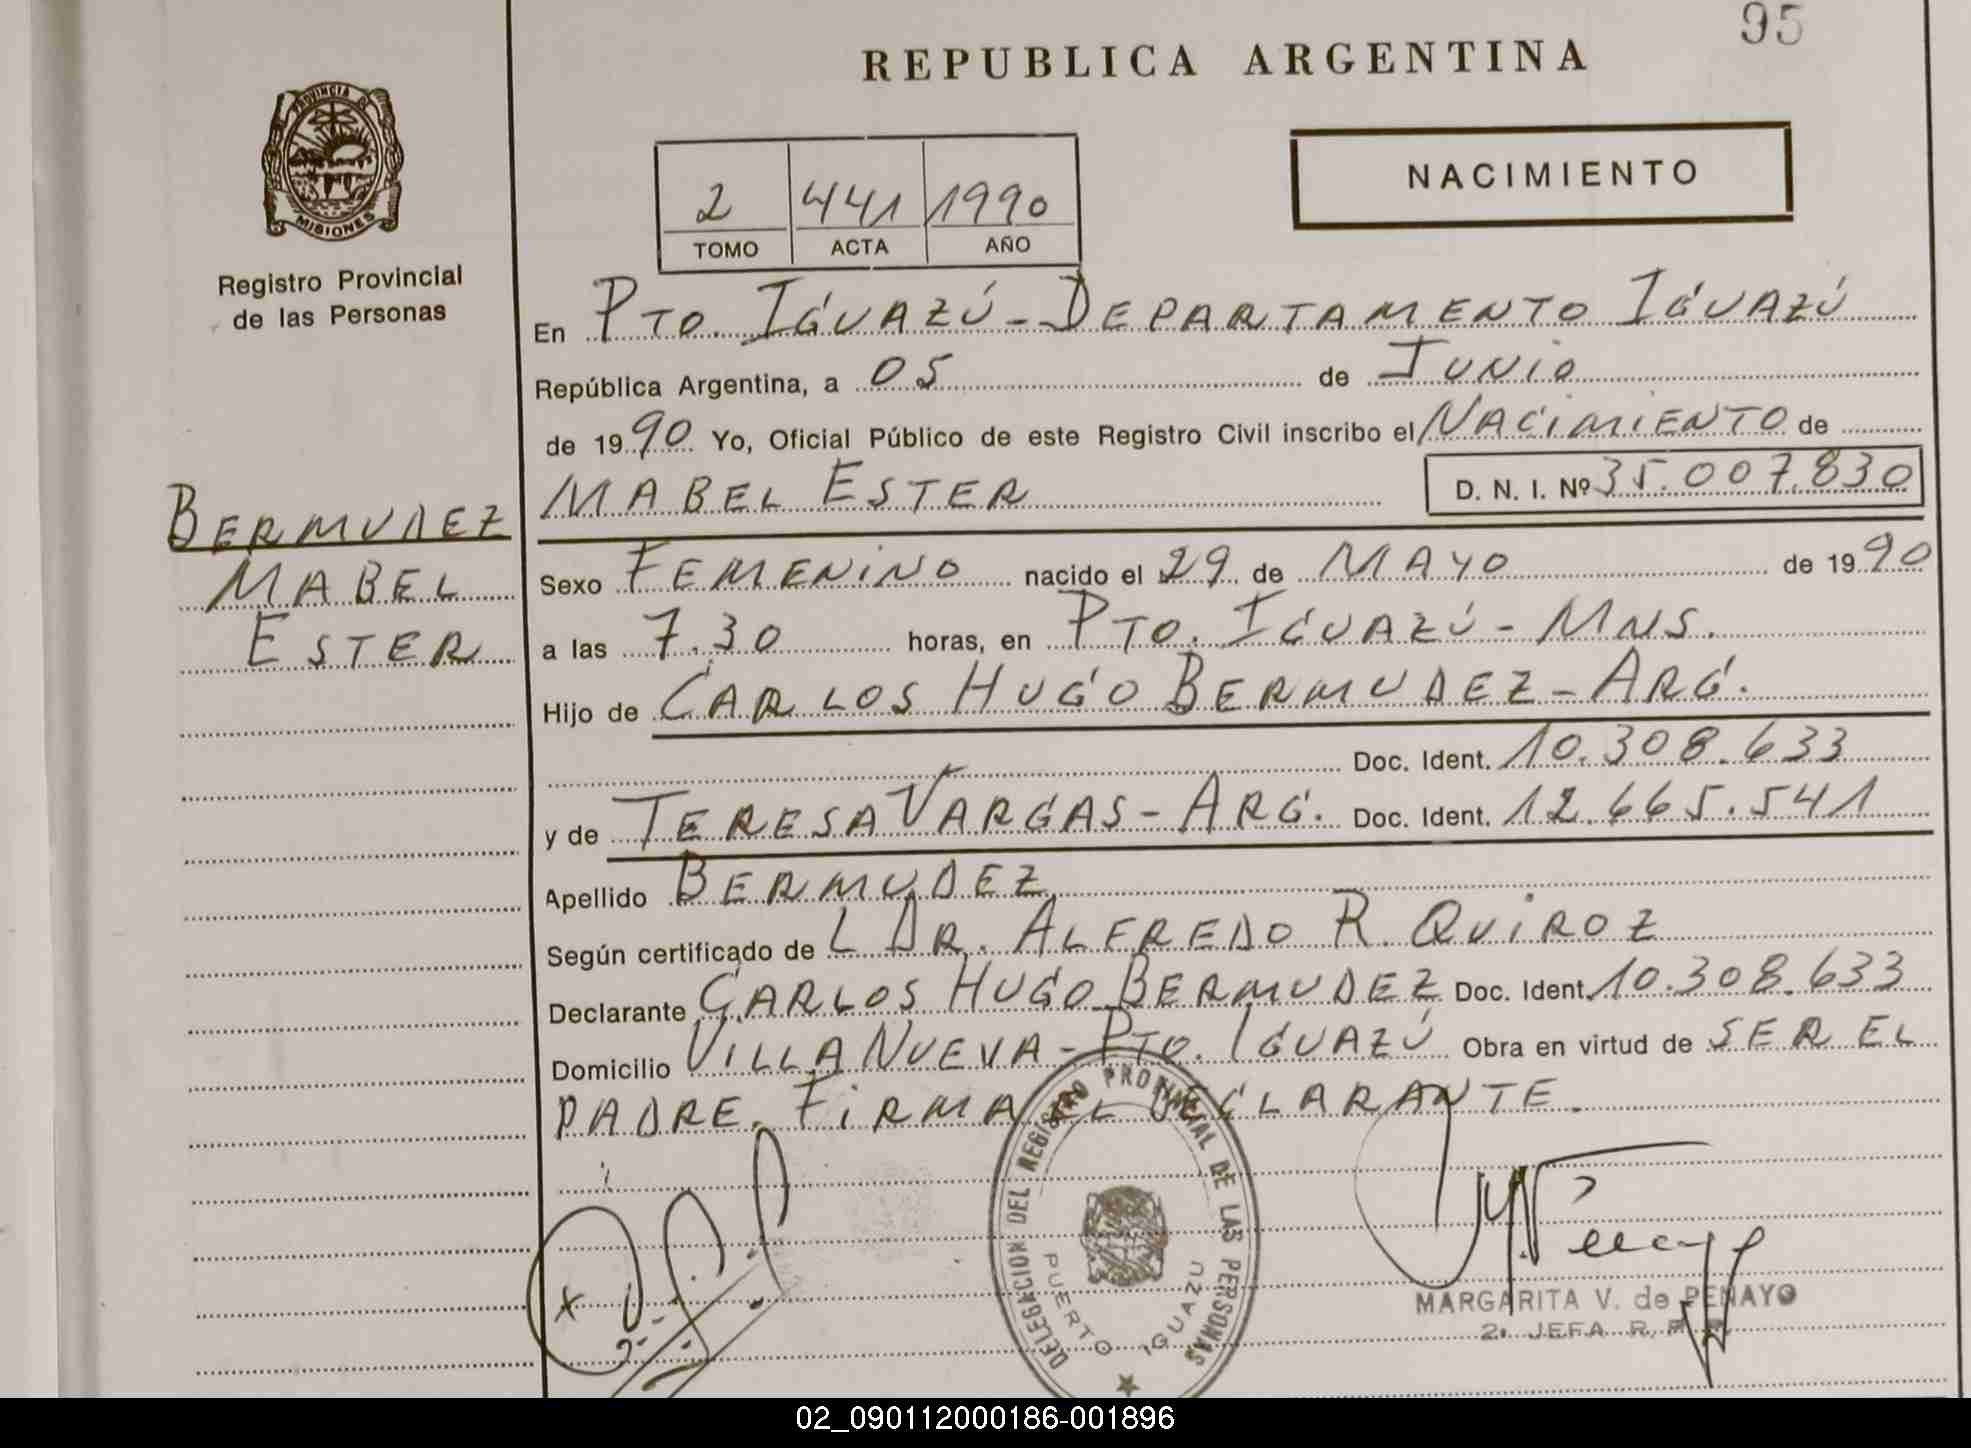 95
REPUBLICA ARGENTINA
PROVINCIA DE
MISIONES
Registro Provincial
de las Personas
NACIMIENTO
2 441 1990
TOMO ACTA AÑO
En PTO. IGUAZÚ - DEPARTAMENTO IGUAZÚ
República Argentina, a 05 de JUNIO
de 1990 Yo, Oficial Público de este Registro Civil inscribo el NACIMIENTO de
MABEL ESTER D. N. I. Nº 35.007.830
BERMUDEZ
MABEL
ESTER
Sexo FEMENINO nacido el 29 de MAYO de 1990
a las 7.30 horas, en PTO. IGUAZÚ - MNS.
Hijo de CARLOS HUGO BERMUDEZ - ARG.
Doc. Ident. 10.308.633
y de TERESA VARGAS - ARG. Doc. Ident. 12.665.541
Apellido BERMUDEZ
Según certificado de L DR. ALFREDO R. QUIROZ
Declarante CARLOS HUGO BERMUDEZ Doc. Ident. 10.308.633
Domicilio VILLA NUEVA - PTO. IGUAZÚ Obra en virtud de SER EL
PADRE. FIRMA EL DECLARANTE.
DELEGACION DEL REGISTRO PROVINCIAL DE LAS PERSONAS
PUERTO IGUAZU
MARGARITA V. de PENAYO
2. JEFA R.
02_090112000186-001896